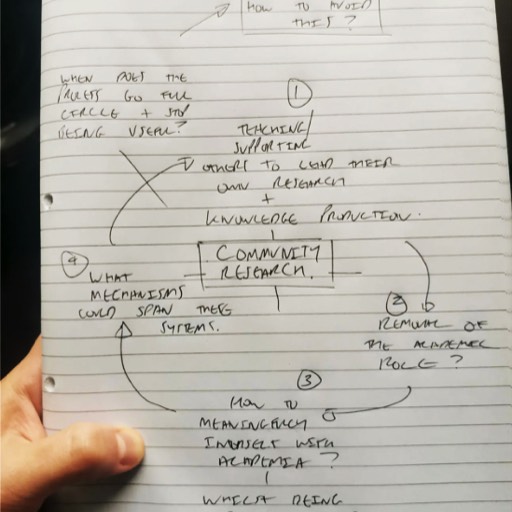 HOW TO AVOID
THIS?
WHEN DOES THE
PROCESS GO FULL
CIRCLE + STOP
BEING USEFUL?
1
TEACHING/
SUPPORTING
OTHERS TO LEAD THEIR
OWN RESEARCH
+
KNOWLEDGE PRODUCTION.
COMMUNITY
RESEARCH.
2
REMOVAL OF
THE ACADEMIC
ROLE?
3
HOW TO
MEANINGFULLY
INTERSECT WITH
ACADEMIA?
WHILST BEING
4
WHAT
MECHANISMS
COULD SPAN THESE
SYSTEMS.